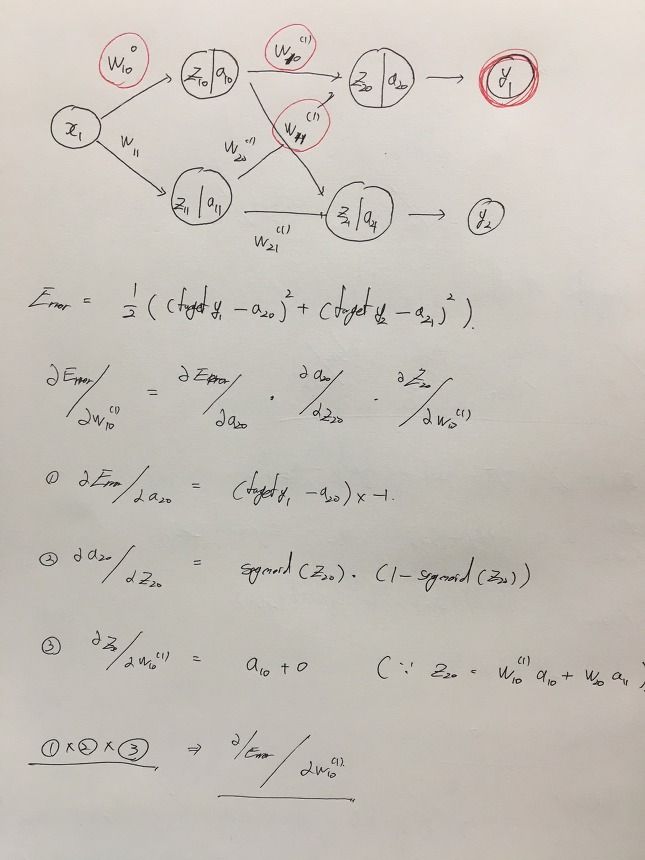 W₁₀⁰ W₁₀⁽¹⁾
z₁₀ | a₁₀ z₂₀ | a₂₀ y₁
x₁ W₁₁ W₂₀⁽¹⁾ W₁₁⁽¹⁾
z₁₁ | a₁₁ z₂₁ | a₂₁ y₂
W₂₁⁽¹⁾
Error = 1/2 ( (target y₁ - a₂₀)² + (target y₂ - a₂₁)² ).
∂Error/∂W₁₀⁽¹⁾ = ∂Error/∂a₂₀ · ∂a₂₀/∂z₂₀ · ∂z₂₀/∂W₁₀⁽¹⁾
① ∂Error/∂a₂₀ = (target y₁ - a₂₀) × -1.
② ∂a₂₀/∂z₂₀ = segmoid (z₂₀) · (1 - segmoid (z₂₀))
③ ∂z₂₀/∂W₁₀⁽¹⁾ = a₁₀ + 0 (∵ z₂₀ = W₁₀⁽¹⁾ a₁₀ + W₂₀ a₁₁)
① × ② × ③ ⇒ ∂Error/∂W₁₀⁽¹⁾